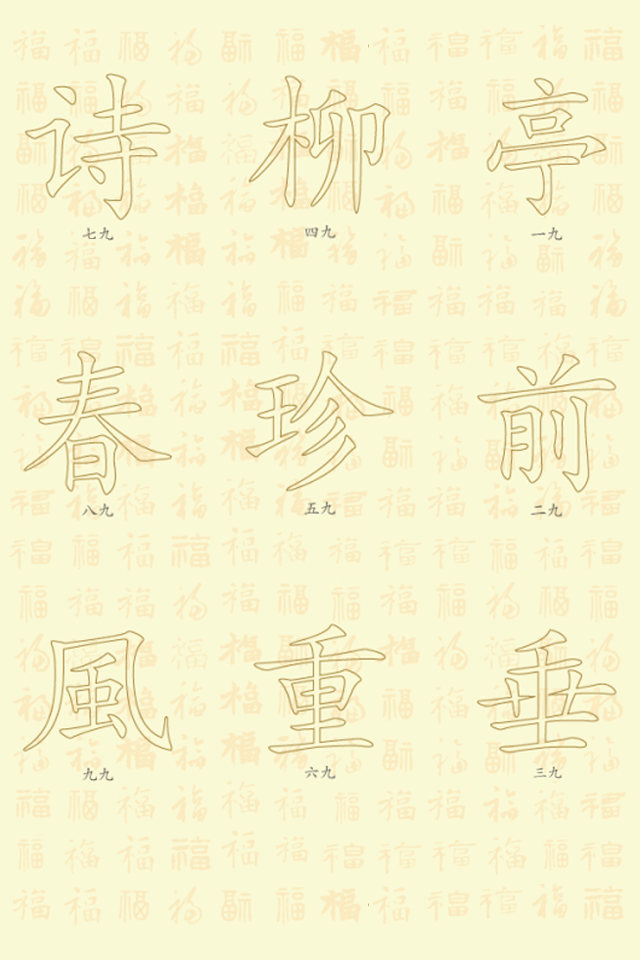 亭
一九
前
二九
垂
三九
柳
四九
珍
五九
重
六九
诗
七九
春
八九
風
九九